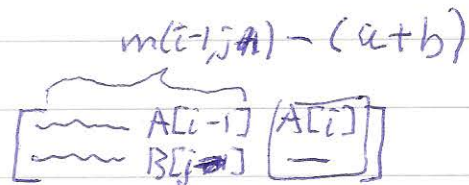 m(i-1,j) - (a+b)
A[i-1] A[i]
B[j] —